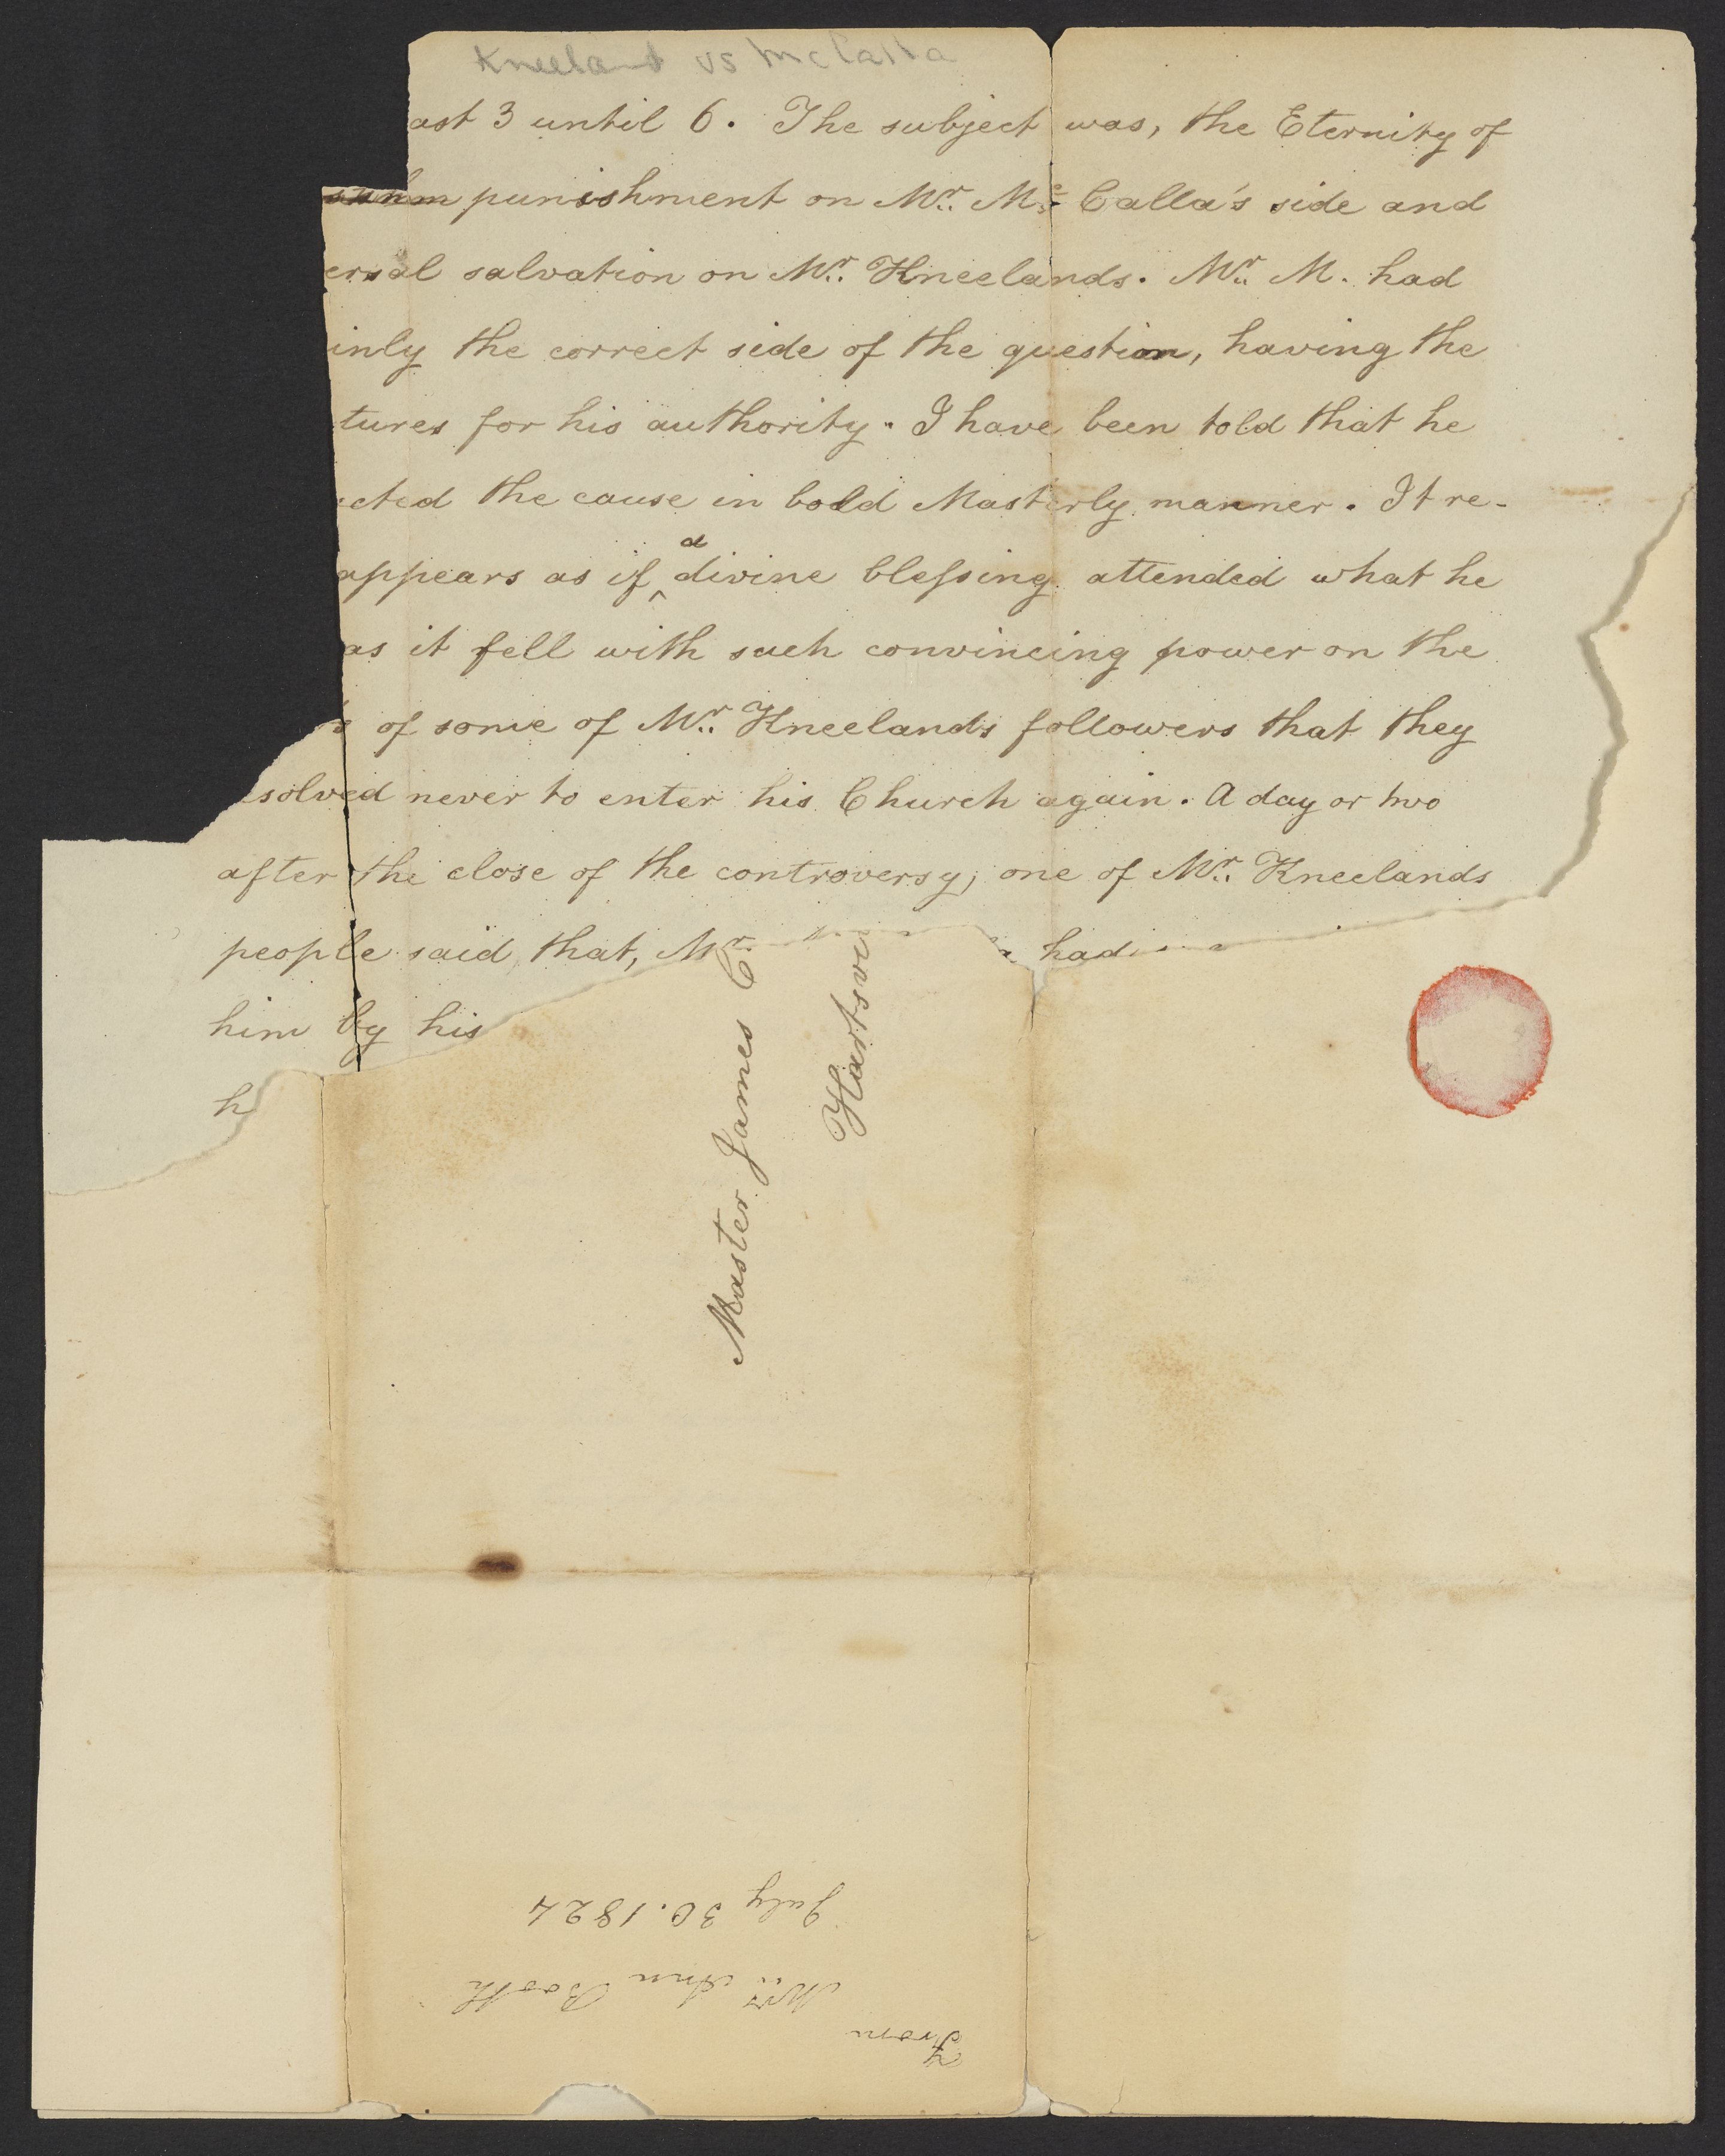 Kneeland vs McCalla
ast 3 until 6. The subject was, the Eternity of
punishment on Mr. Mc Calla's side and
ersal salvation on Mr. Kneelands. Mr. M. had
inly the correct side of the question, having the
tures for his authority. I have been told that he
cted the cause in bold Masterly manner. It re-
appears as if a divine blessing attended what he
as it fell with such convincing power on the
of some of Mr. Kneelands followers that they
solved never to enter his Church again. A day or two
after the close of the controversy, one of Mr. Kneelands
people said that, Mr. had
him by his
h
Master James C.
Hartsvi
From
Mrs. Ann Booth
July 30. 1824